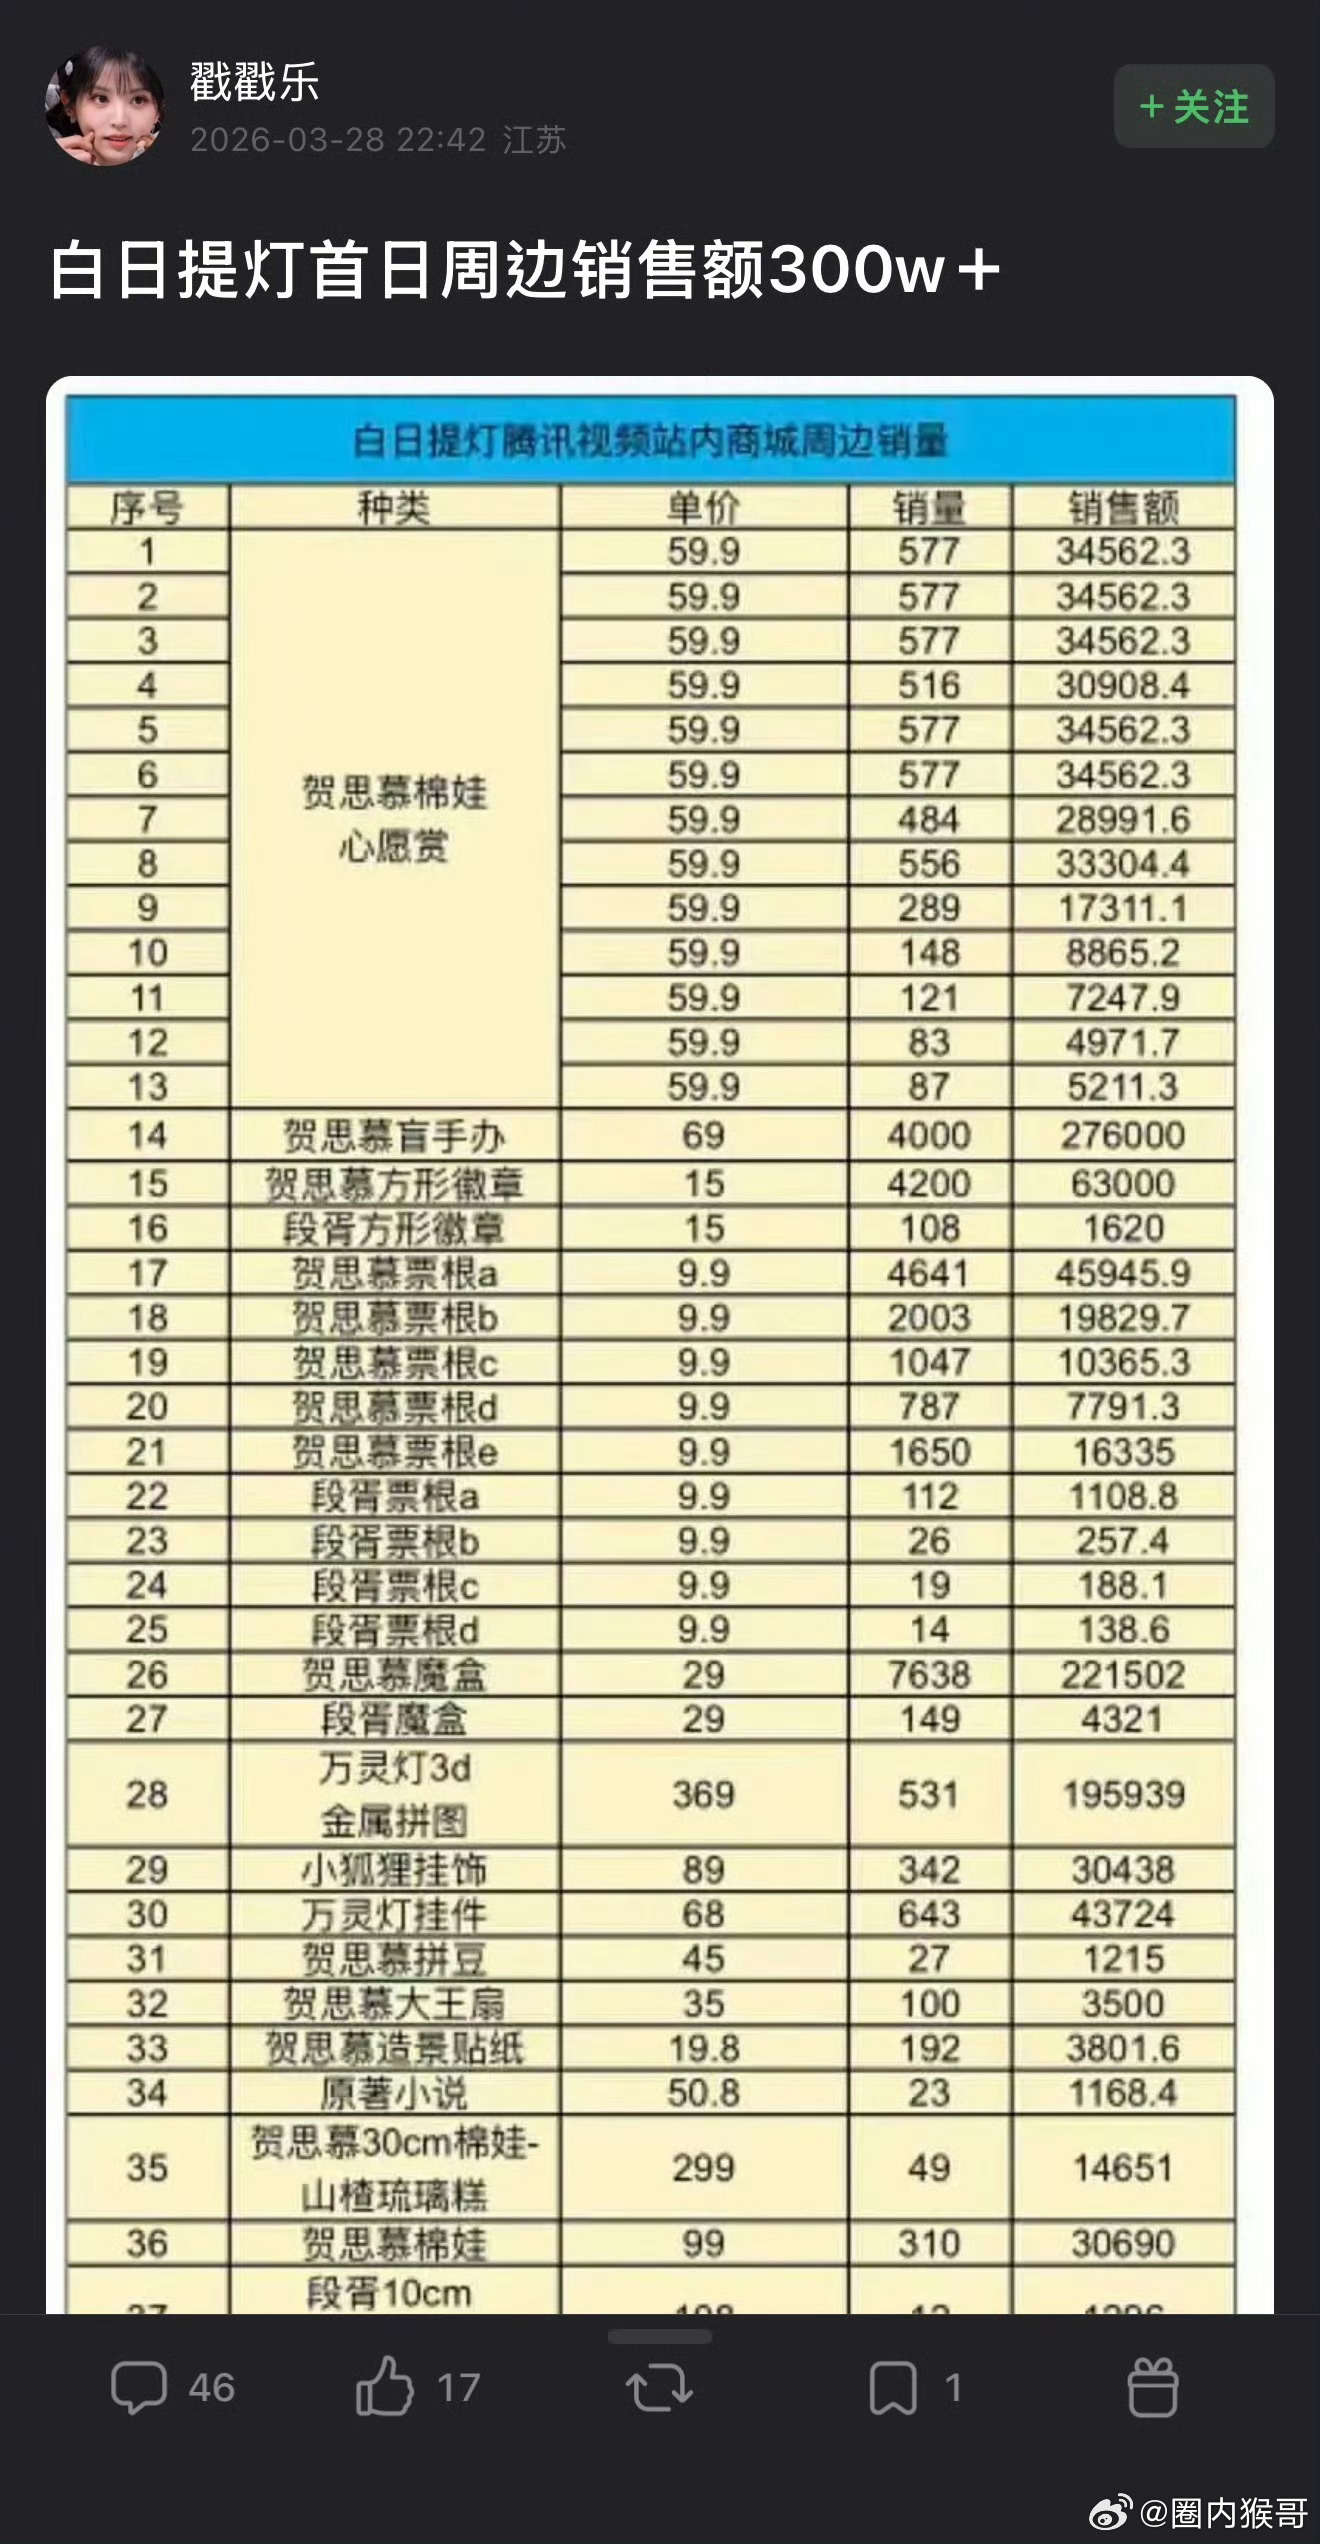 戳戳乐
2026-03-28 22:42 江苏
+关注
白日提灯首日周边销售额300w+
白日提灯腾讯视频站内商城周边销量
序号 种类 单价 销量 销售额
1 59.9 577 34562.3
2 59.9 577 34562.3
3 59.9 577 34562.3
4 59.9 516 30908.4
5 59.9 577 34562.3
6 59.9 577 34562.3
贺思慕棉娃
7 59.9 484 28991.6
心愿赏
8 59.9 556 33304.4
9 59.9 289 17311.1
10 59.9 148 8865.2
11 59.9 121 7247.9
12 59.9 83 4971.7
13 59.9 87 5211.3
14 贺思慕盲手办 69 4000 276000
15 贺思慕方形徽章 15 4200 63000
16 段胥方形徽章 15 108 1620
17 贺思慕票根a 9.9 4641 45945.9
18 贺思慕票根b 9.9 2003 19829.7
19 贺思慕票根c 9.9 1047 10365.3
20 贺思慕票根d 9.9 787 7791.3
21 贺思慕票根e 9.9 1650 16335
22 段胥票根a 9.9 112 1108.8
23 段胥票根b 9.9 26 257.4
24 段胥票根c 9.9 19 188.1
25 段胥票根d 9.9 14 138.6
26 贺思慕魔盒 29 7638 221502
27 段胥魔盒 29 149 4321
万灵灯3d
28 369 531 195939
金属拼图
29 小狐狸挂饰 89 342 30438
30 万灵灯挂件 68 643 43724
31 贺思慕拼豆 45 27 1215
32 贺思慕大王扇 35 100 3500
33 贺思慕造景贴纸 19.8 192 3801.6
34 原著小说 50.8 23 1168.4
贺思慕30cm棉娃-
35 299 49 14651
山楂琉璃糕
36 贺思慕棉娃 99 310 30690
段胥10cm
46 17 1
@圈内猴哥